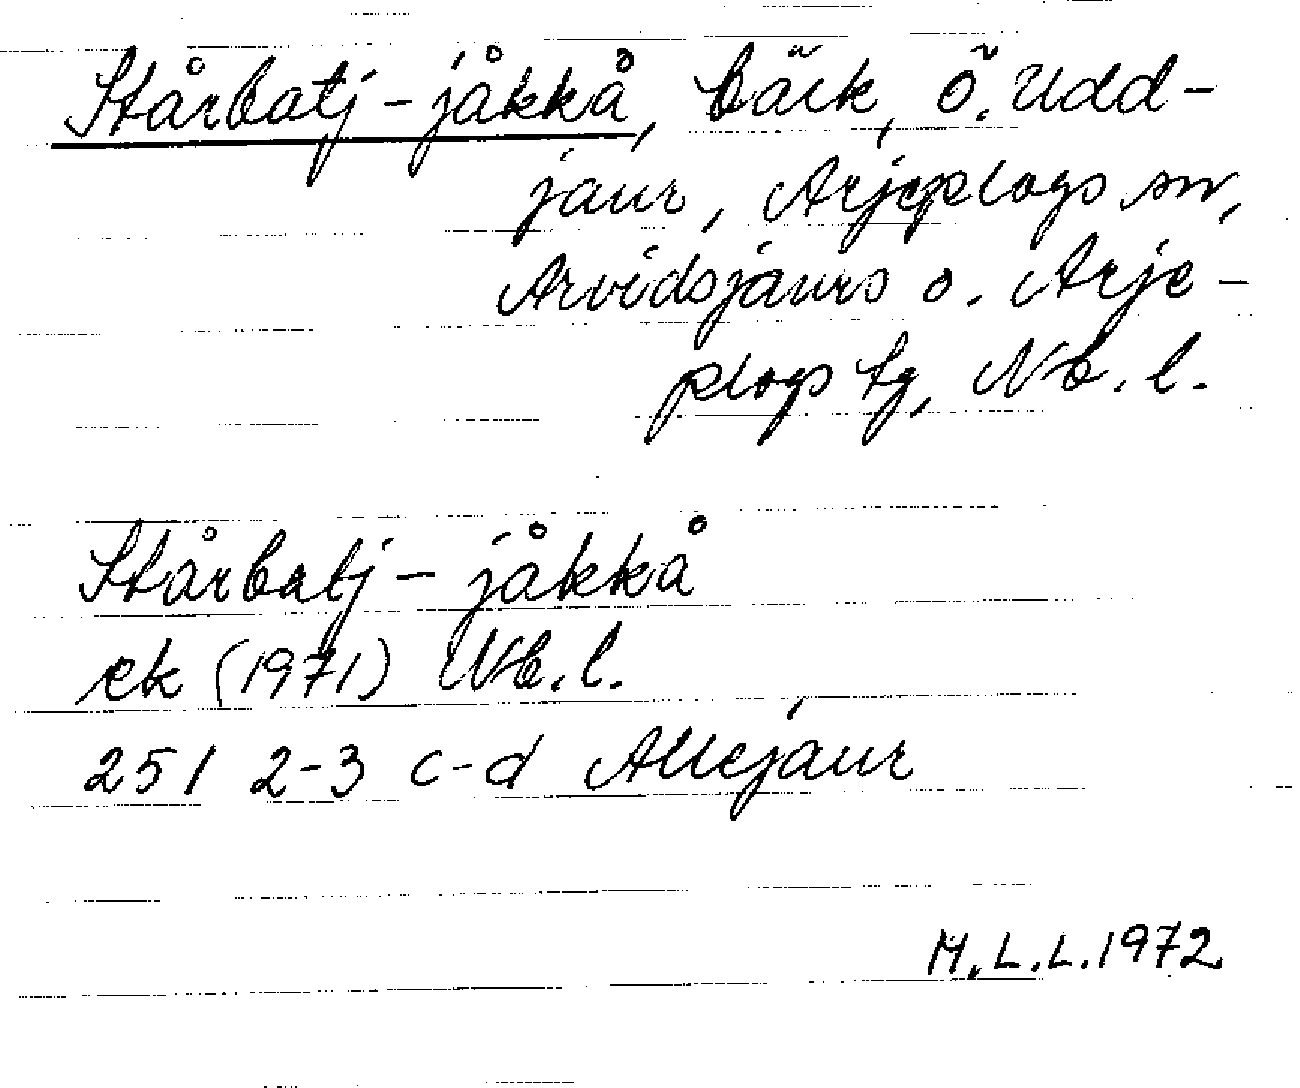 Stårbatj-jåkkå, bäck, ö. Udd-
jaur, Arjeplogs sn,
Arvidsjaurs o. Arje-
plogs tg, Nb. l.
Stårbatj-jåkkå
ek (1971) Nb. l.
251 2-3 c-d Allejaur
M.L.L. 1972